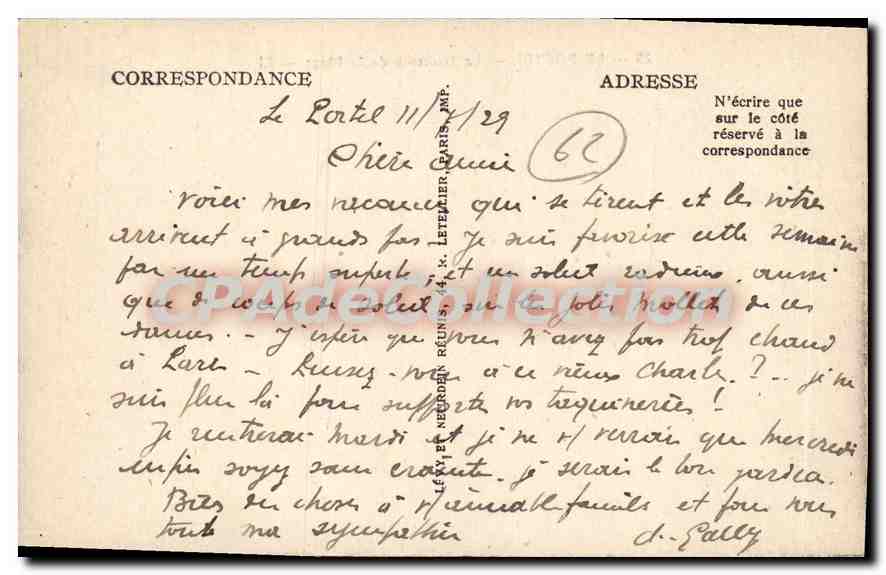 CORRESPONDANCE
ADRESSE
N'écrire que
sur le côté
réservé à la
correspondance
Le Portel 11/7/29
62
Chère amie
Voici mes vacances qui se tirent et les vôtres
arrivent à grands pas - Je suis favorisé cette semaine
par un temps superbe, et un soleil radieux, aussi
que de coups de soleil sur les jolis mollets de ces
dames. - J'espère que vous n'avez pas trop chaud
à Paris - Pensez-vous à ce vieux Charles ? - je ne
suis plus là pour supporter vos taquineries !
Je rentrerai Mardi et je ne v/ verrais que mercredi
enfin soyez sans crainte je serais le bon
Bien des choses à v/ aimable famille et pour vous
toute ma sympathie
LÉVY ET NEURDEIN RÉUNIS, 44, R. LETELLIER, PARIS, IMP.
CPAdeCollection